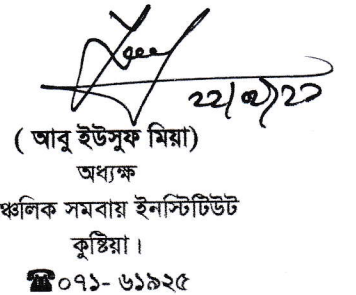 ( আবু ইউসুফ মিয়া)
অধ্যক্ষ
ঞ্চলিক সমবায় ইনস্টিটিউট
কুষ্টিয়া ।
☎০৭১- ৬১৯২৫